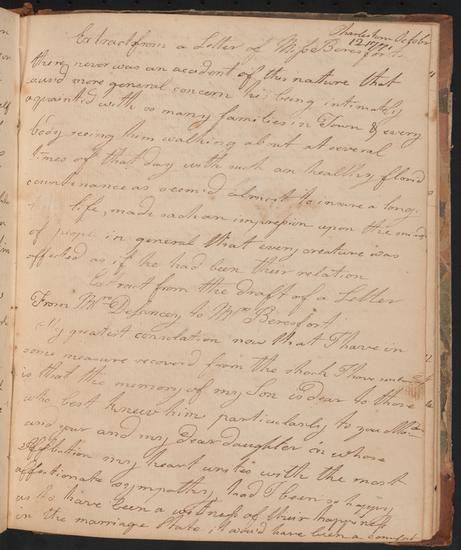 Charlestown Octobr
12 1771
Extract from a Letter of Miss Beresford
there never was an accident of this nature that
caused more general concern his being intimately
aquainted with so many families in Town & every
body seeing him walking about at several
times of that day with such an healthy florid
countenance as seemed almost to insure a long
life, made such an impression upon the minds
of people in general that every creature was
affected as if he had been their relation
Extract from the draft of a Letter
From Mrs Delancey to Mrs Beresford
My greatest consolation now that I have in
some measure recoverd from the shock I have
is that the memory of my Son is dear to those
who best knew him particularly to you
and your and my dear daughter on whose
my heart unites with the most
affectionate sympathy, had I been so happy
as to have been a witness of their happiness
in the marriage State it would have been a comfort